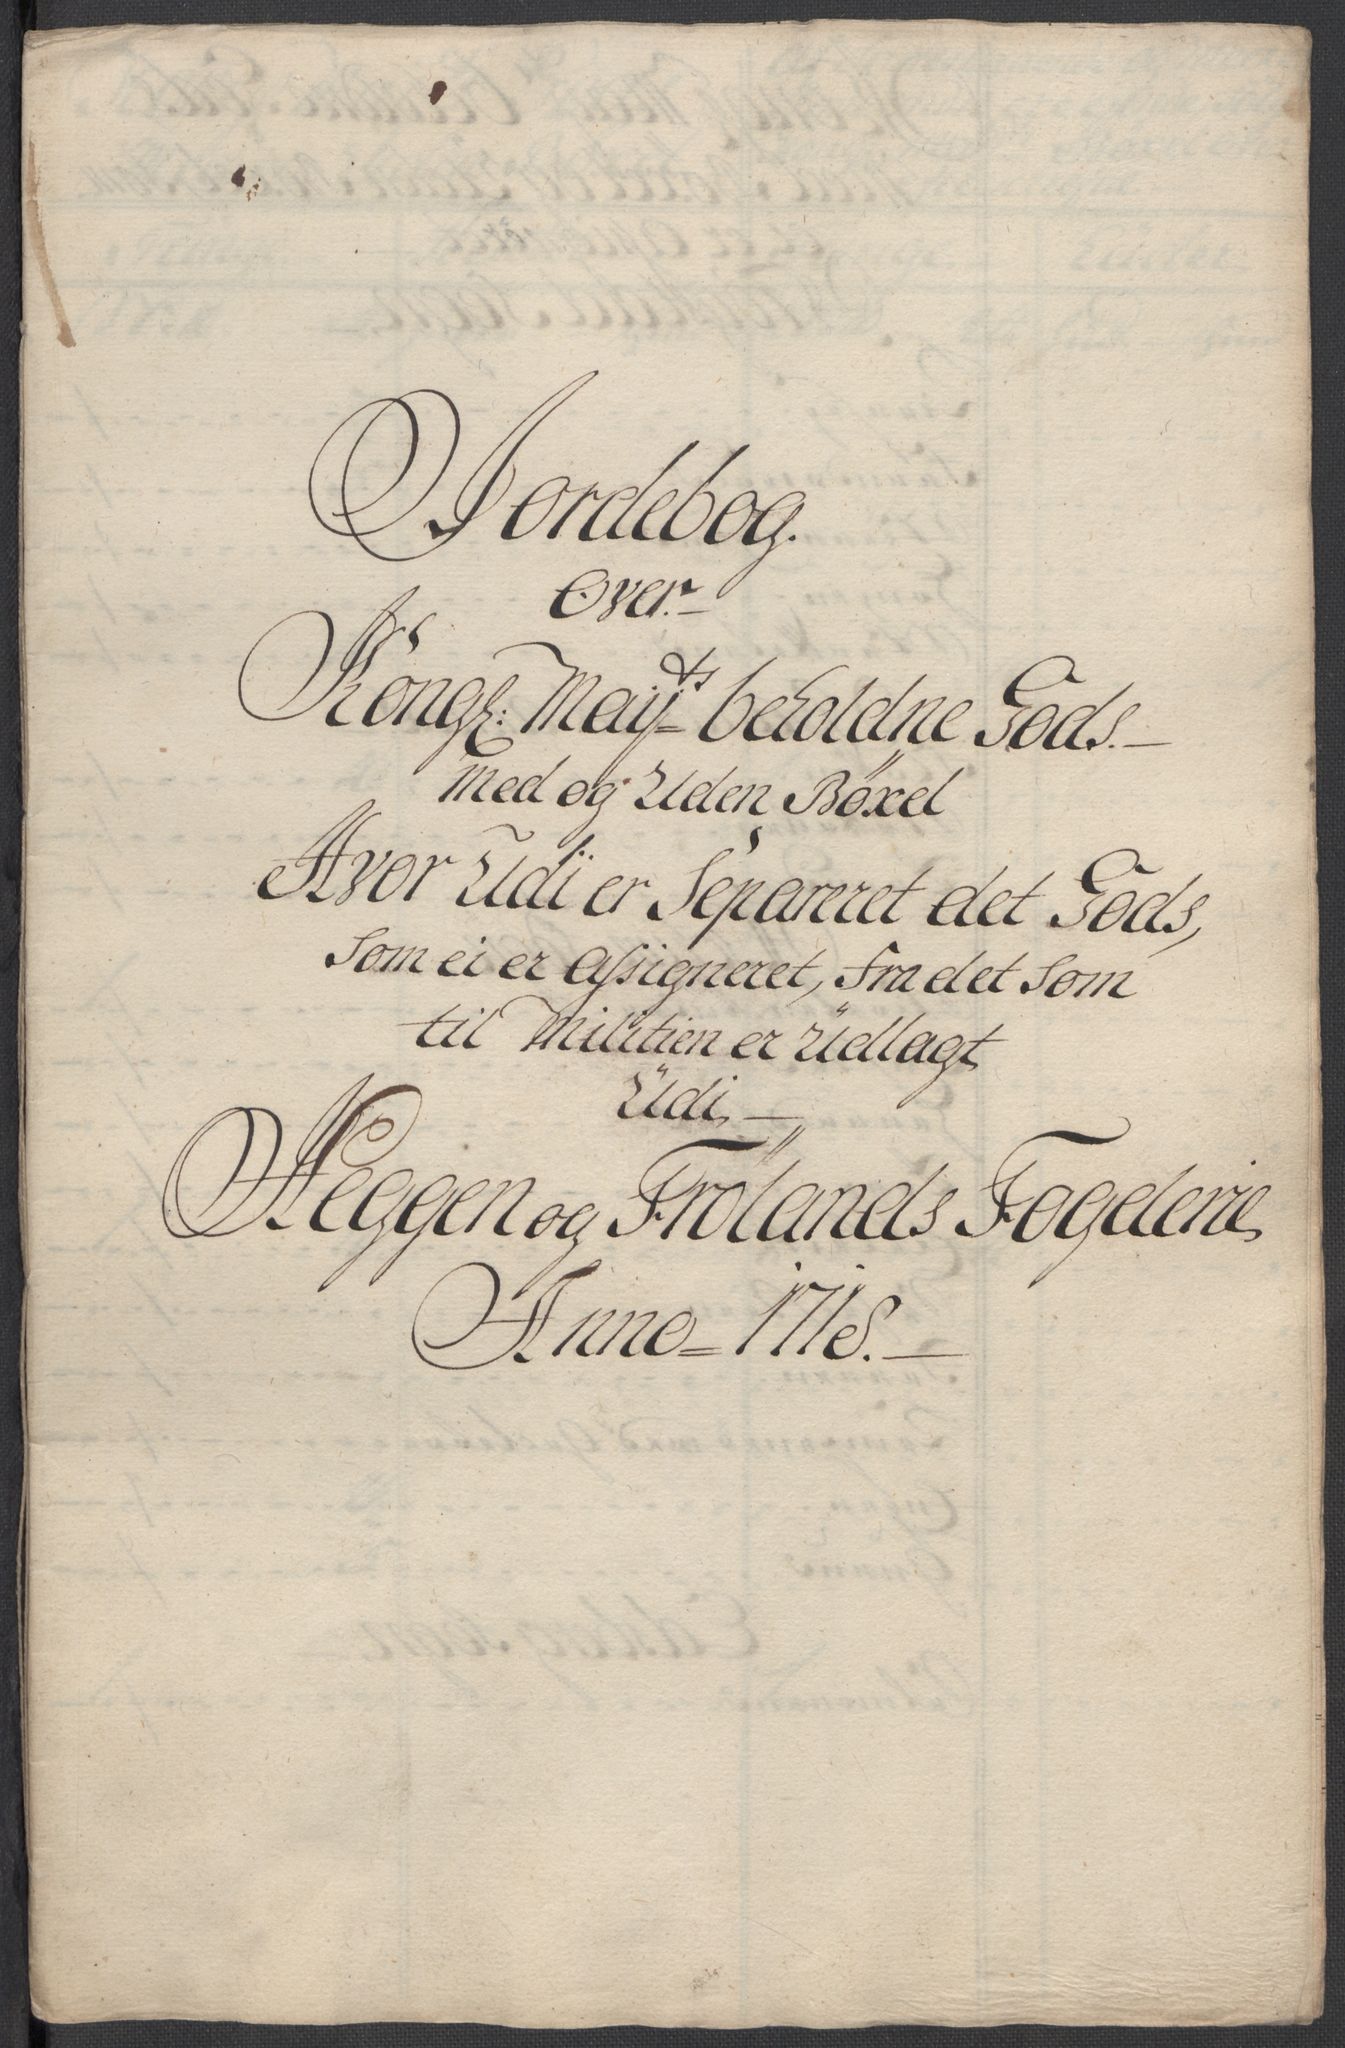 Jordebog.
Over
Kongl: May<sup>ts</sup> beholdne Gods.
Med og Uden Böxel
Hvor Udi er Separeret det Gods,
Som ei er Assigneret, fra det Som
til Militien er Udlagt
Udi
Heggen og Frölands Fogderie
Anno 1718.